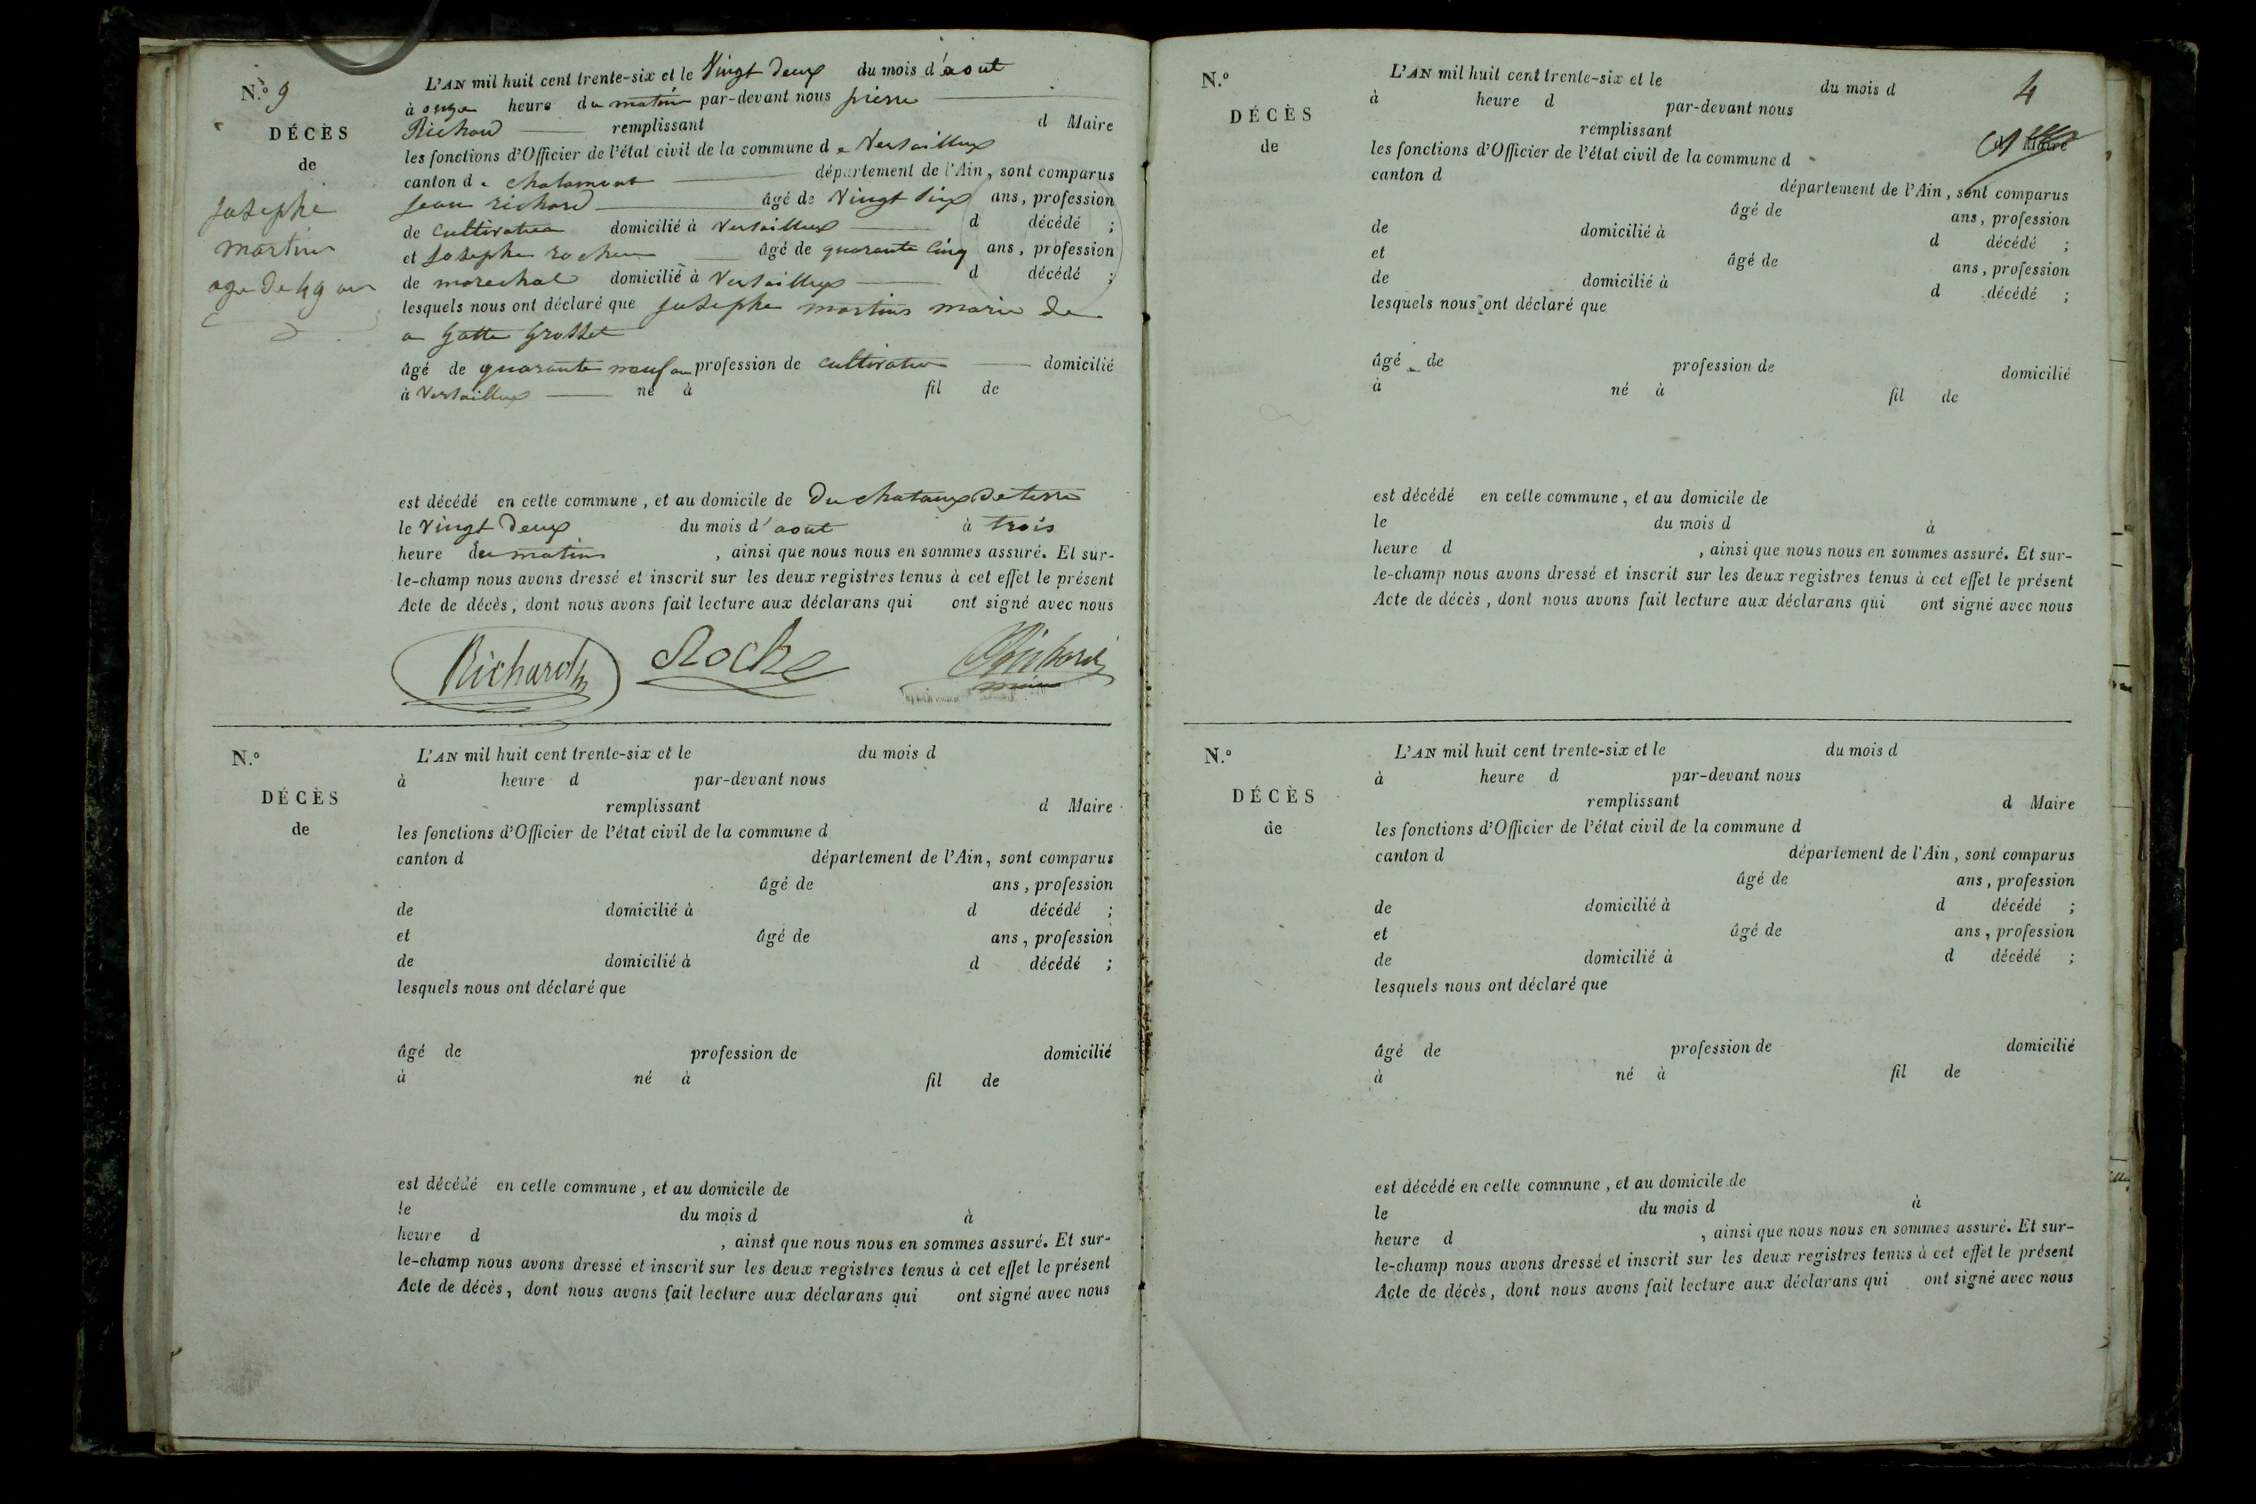 N.º 9
DÉCÈS
de
josephe
martin
age de 49 an
L'AN mil huit cent trente-six et le Vingt deux du mois d'aout
à onze heure du matin par-devant nous pierre
Richard remplissant d Maire
les fonctions d'Officier de l'état civil de la commune de Versailleux
canton de chalamont département de l'Ain, sont comparus
jean richard âgé de Vingt six ans, profession
de cultivateur domicilié à Versailleux d décédé ;
et josephe roche âgé de quarante cinq ans, profession
de marechal domicilié à Versailleux d décédé ;
lesquels nous ont déclaré que josephe martin marie de
a gatte grosset
âgé de quarante neuf an profession de cultivateur domicilié
à Versailleux né à fil de
est décédé en cette commune, et au domicile de Du chataux de terre
le Vingt Deux du mois d'aout à trois
heure du matin, ainsi que nous nous en sommes assuré. Et sur-
le-champ nous avons dressé et inscrit sur les deux registres tenus à cet effet le présent
Acte de décès, dont nous avons fait lecture aux déclarans qui ont signé avec nous
Richard Roche Richard
maire
N.º
DÉCÈS
de
L'AN mil huit cent trente-six et le du mois d
à heure d par-devant nous
remplissant d Maire
les fonctions d'Officier de l'état civil de la commune d
canton d département de l'Ain, sont comparus
âgé de ans, profession
de domicilié à d décédé ;
et âgé de ans, profession
de domicilié à d décédé ;
lesquels nous ont déclaré que
âgé de profession de domicilié
à né à fil de
est décédé en cette commune, et au domicile de
le du mois d à
heure d , ainsi que nous nous en sommes assuré. Et sur-
le-champ nous avons dressé et inscrit sur les deux registres tenus à cet effet le présent
Acte de décès, dont nous avons fait lecture aux déclarans qui ont signé avec nous
4
N.º
DÉCÈS
de
L'AN mil huit cent trente-six et le du mois d
à heure d par-devant nous
remplissant d Maire
les fonctions d'Officier de l'état civil de la commune d
canton d département de l'Ain, sont comparus
âgé de ans, profession
de domicilié à d décédé ;
et âgé de ans, profession
de domicilié à d décédé ;
lesquels nous ont déclaré que
âgé de profession de domicilié
à né à fil de
est décédé en cette commune, et au domicile de
le du mois d à
heure d , ainsi que nous nous en sommes assuré. Et sur-
le-champ nous avons dressé et inscrit sur les deux registres tenus à cet effet le présent
Acte de décès, dont nous avons fait lecture aux déclarans qui ont signé avec nous
N.º
DÉCÈS
de
L'AN mil huit cent trente-six et le du mois d
à heure d par-devant nous
remplissant d Maire
les fonctions d'Officier de l'état civil de la commune d
canton d département de l'Ain, sont comparus
âgé de ans, profession
de domicilié à d décédé ;
et âgé de ans, profession
de domicilié à d décédé ;
lesquels nous ont déclaré que
âgé de profession de domicilié
à né à fil de
est décédé en cette commune, et au domicile de
le du mois d à
heure d , ainsi que nous nous en sommes assuré. Et sur-
le-champ nous avons dressé et inscrit sur les deux registres tenus à cet effet le présent
Acte de décès, dont nous avons fait lecture aux déclarans qui ont signé avec nous